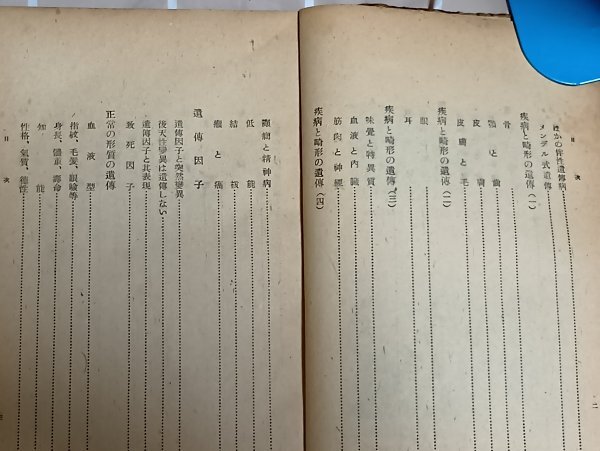 目次
僅かの劣性遺傳病
メンデル式遺傳
疾病と畸形の遺傳（一）
骨
顎と齒
皮膚
皮膚と毛
疾病と畸形の遺傳（二）
眼
耳
疾病と畸形の遺傳（三）
味覺と特異質
血液と內臟
筋肉と神經
疾病と畸形の遺傳（四）
二
癲癇と精神病
低能
結核
癩と癌
遺傳因子
遺傳因子と突然變異
後天性變異は遺傳しない
遺傳因子と其表現
致死因子
正常の形質の遺傳
血液型
指紋、毛髮、眼瞼等
身長、體重、壽命
知能
性格、氣質、德性
目次
三